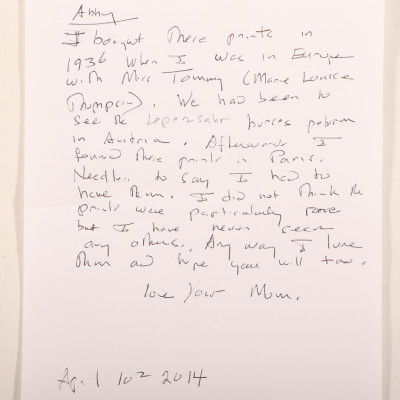 Abby
I bought these prints in
1936 when I was in Europe
with Miss Tommy (Marie Louise
Thompson). We had been to
see the horses perform
in Austria. Afterwards I
found these prints in Paris.
Needless to say I had to
have them. I did not think the
prints were particularly rare
but I have never seen
any others. Any way I love
them and hope you will too.
love your Mom.
April 10th 2014